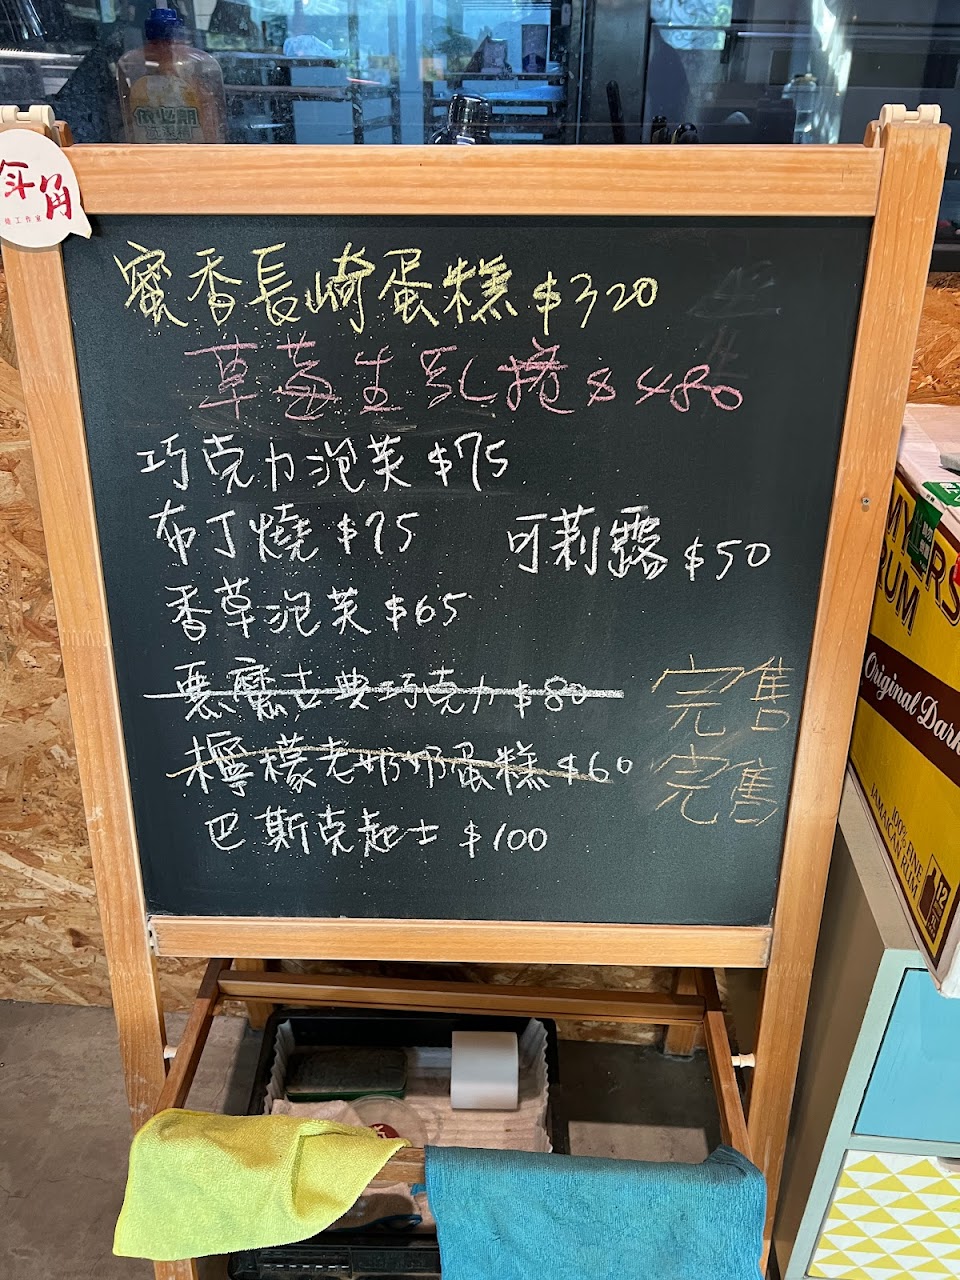 角
工作室
蜜香長崎蛋糕 $320
草莓生乳捲 $480
巧克力泡芙 $75
布丁燒 $75 可莉露 $50
香草泡芙 $65
惡魔古典巧克力 $80 完售
檸檬老奶奶蛋糕 $60 完售
巴斯克起士 $100
MYERS
RUM
Original Dark
100% FINE
JAMAICAN RUM
12